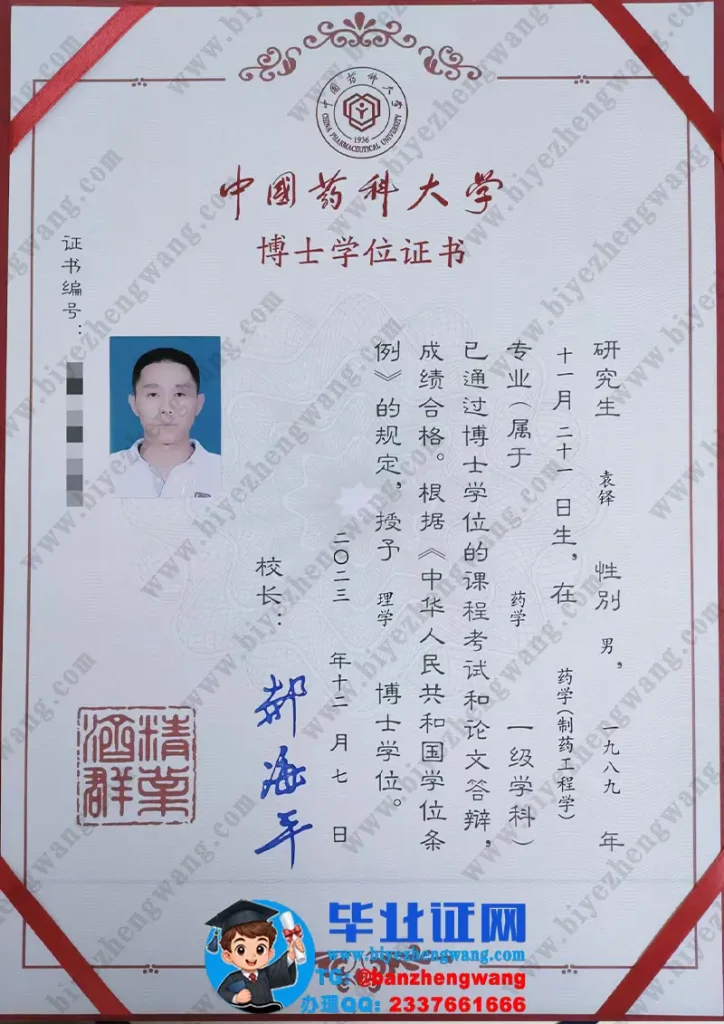 中国药科大学
CHINA PHARMACEUTICAL UNIVERSITY
1936
中國药科大学
博士学位证书
证书编号：
研究生 袁铎 性别 男， 一九八九 年
十一月 二十一 日生，在 药学(制药工程学)
专业（属于 药学 一级学科）
已通过博士学位的课程考试和论文答辩，
成绩合格。根据《中华人民共和国学位条
例》的规定，授予 理学 博士学位。
二〇二三 年十二月七 日
校长：
郝海平
精業
济群
毕业证网
www.biyezhengwang.com
TG: @banzhengwang
办理QQ: 2337661666
www.biyezhengwang.com